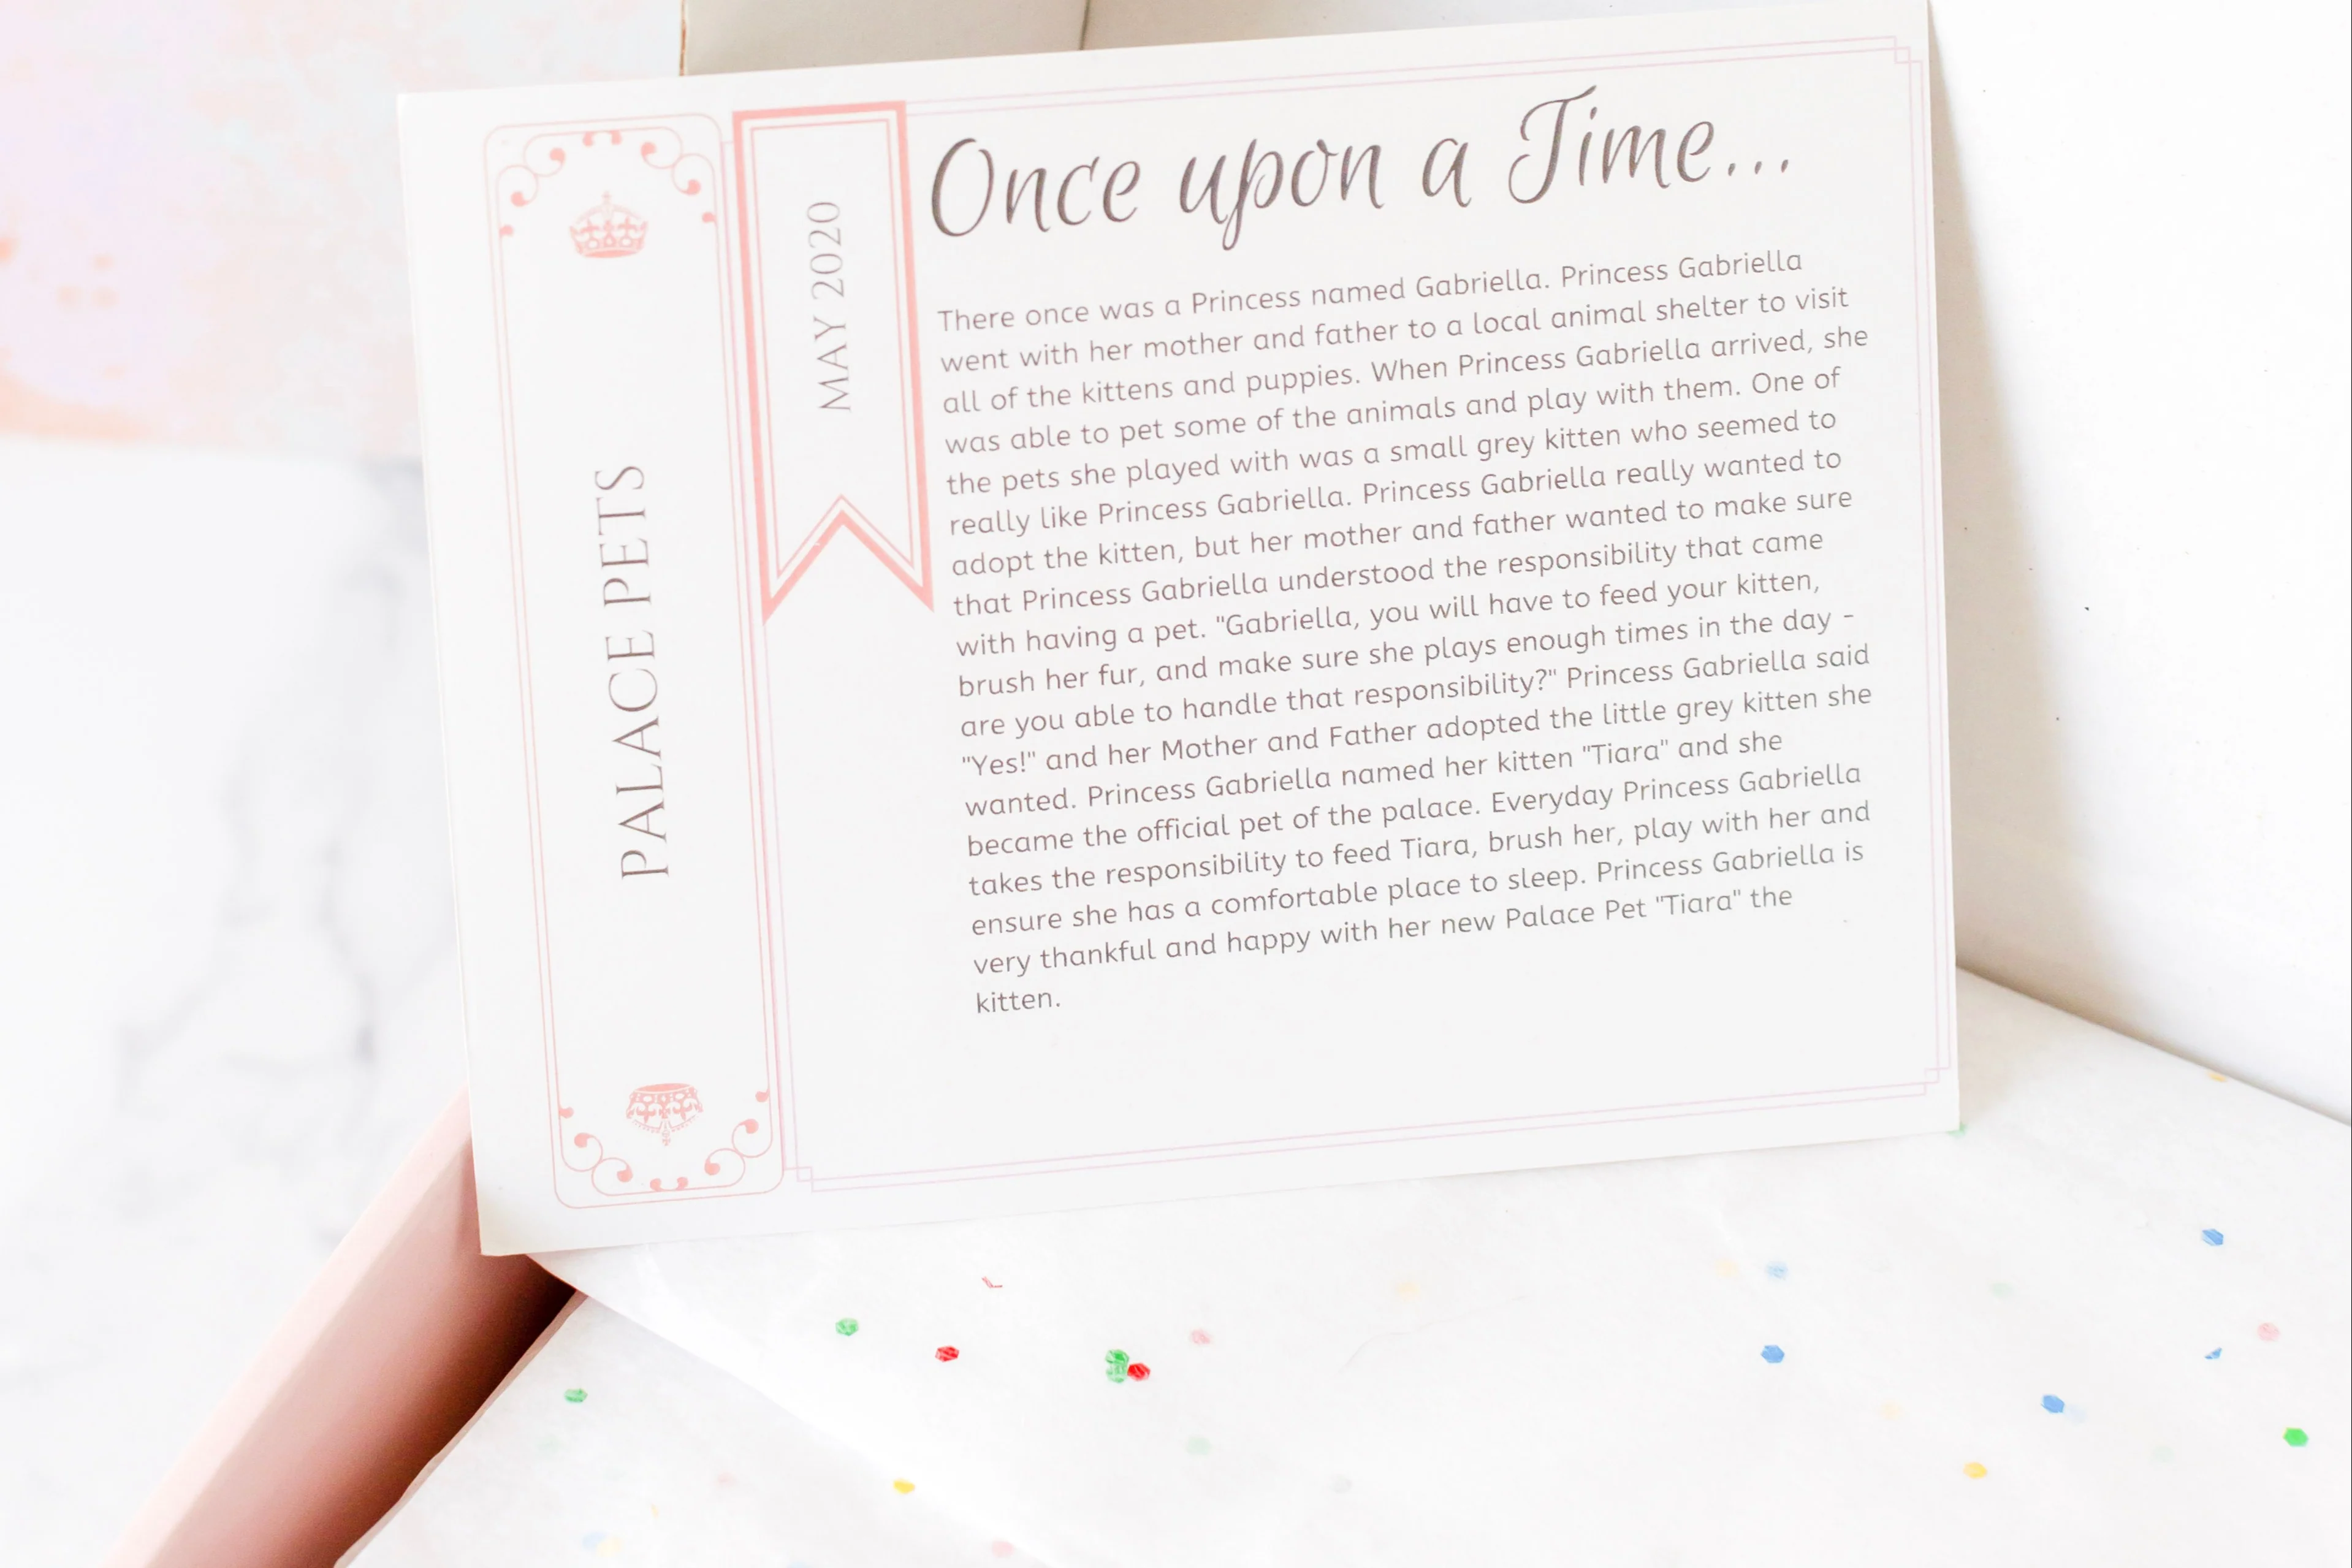 PALACE PETS
MAY 2020
Once upon a Time...
There once was a Princess named Gabriella. Princess Gabriella
went with her mother and father to a local animal shelter to visit
all of the kittens and puppies. When Princess Gabriella arrived, she
was able to pet some of the animals and play with them. One of
the pets she played with was a small grey kitten who seemed to
really like Princess Gabriella. Princess Gabriella really wanted to
adopt the kitten, but her mother and father wanted to make sure
that Princess Gabriella understood the responsibility that came
with having a pet. "Gabriella, you will have to feed your kitten,
brush her fur, and make sure she plays enough times in the day -
are you able to handle that responsibility?" Princess Gabriella said
"Yes!" and her Mother and Father adopted the little grey kitten she
wanted. Princess Gabriella named her kitten "Tiara" and she
became the official pet of the palace. Everyday Princess Gabriella
takes the responsibility to feed Tiara, brush her, play with her and
ensure she has a comfortable place to sleep. Princess Gabriella is
very thankful and happy with her new Palace Pet "Tiara" the
kitten.